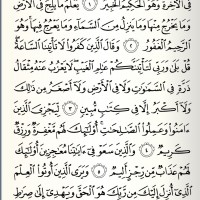 فِى ٱلْأَخِرَةِ وَهُوَ ٱلْحَكِيمُ ٱلْخَبِيرُ ١ يَعْلَمُ مَا يَلِجُ فِى ٱلْأَرْضِ
وَمَا يَخْرُجُ مِنْهَا وَمَا يَنزِلُ مِنَ ٱلسَّمَآءِ وَمَا يَعْرُجُ فِيهَا وَهُوَ
ٱلرَّحِيمُ ٱلْغَفُورُ ٢ وَقَالَ ٱلَّذِينَ كَفَرُوا۟ لَا تَأْتِينَا ٱلسَّاعَةُ
قُلْ بَلَىٰ وَرَبِّى لَتَأْتِيَنَّكُمْ عَٰلِمِ ٱلْغَيْبِ لَا يَعْزُبُ عَنْهُ مِثْقَالُ
ذَرَّةٍ فِى ٱلسَّمَٰوَٰتِ وَلَا فِى ٱلْأَرْضِ وَلَآ أَصْغَرُ مِن ذَٰلِكَ
وَلَآ أَكْبَرُ إِلَّا فِى كِتَٰبٍ مُّبِينٍ ٣ لِّيَجْزِىَ ٱلَّذِينَ
ءَامَنُوا۟ وَعَمِلُوا۟ ٱلصَّٰلِحَٰتِ أُو۟لَٰٓئِكَ لَهُم مَّغْفِرَةٌ وَرِزْقٌ
كَرِيمٌ ٤ وَٱلَّذِينَ سَعَوْ فِىٓ ءَايَٰتِنَا مُعَٰجِزِينَ أُو۟لَٰٓئِكَ
لَهُمْ عَذَابٌ مِّن رِّجْزٍ أَلِيمٌ ٥ وَيَرَى ٱلَّذِينَ أُوتُوا۟ ٱلْعِلْمَ
ٱلَّذِىٓ أُنزِلَ إِلَيْكَ مِن رَّبِّكَ هُوَ ٱلْحَقَّ وَيَهْدِىٓ إِلَىٰ صِرَٰطِ